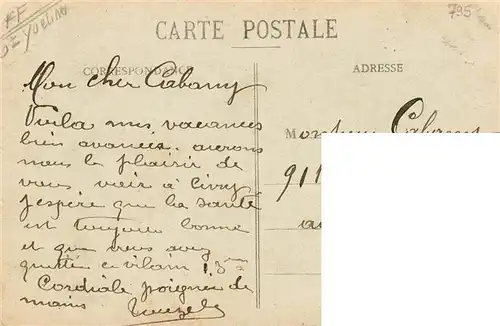 CARTE POSTALE
CORRESPONDANCE
ADRESSE
795
Mon cher Cabany
Voila nos vacances
bien avancées. aurons
nous le plaisir de
vous voir à Civry
j'espère que la santé
est toujours bonne
et que vous avez
quitté ce vilain
Cordiale poignée de
mains
Monsieur Cabany
911